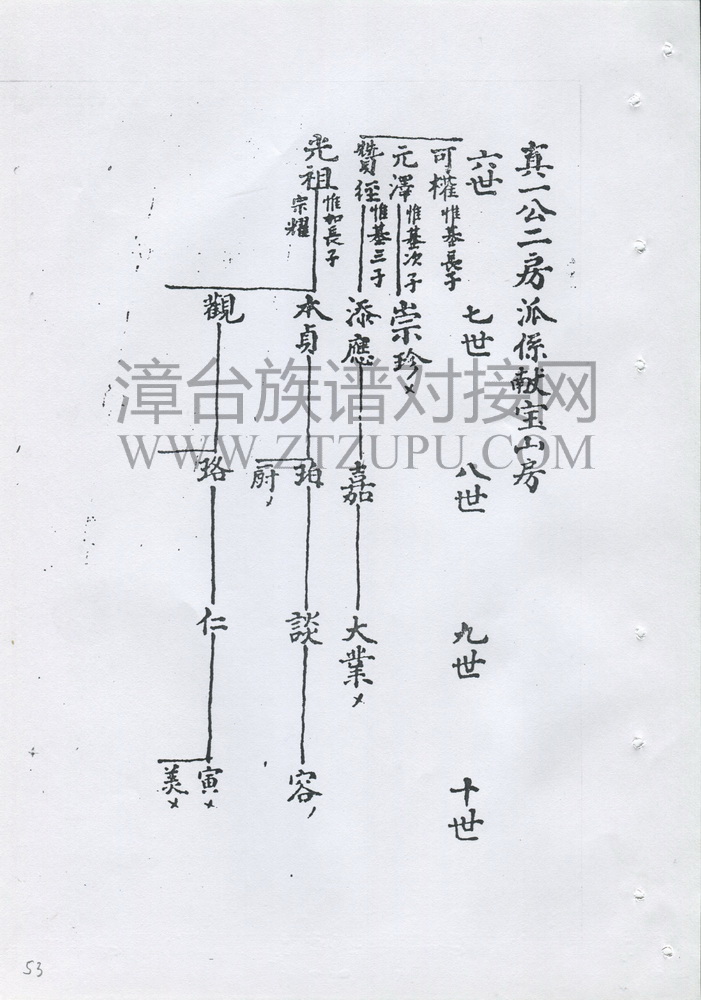 真一公二房派係献宝山房
六世
可權 惟基長子
元澤 惟基次子
贊經 惟基三子
光祖 惟和長子
宗耀
七世
崇珍
添應
本貞
觀
八世
嘉
珀
厨
珞
九世
大業
談
仁
十世
容
寅
美
漳台族谱对接网
WWW.ZTZUPU.COM
53